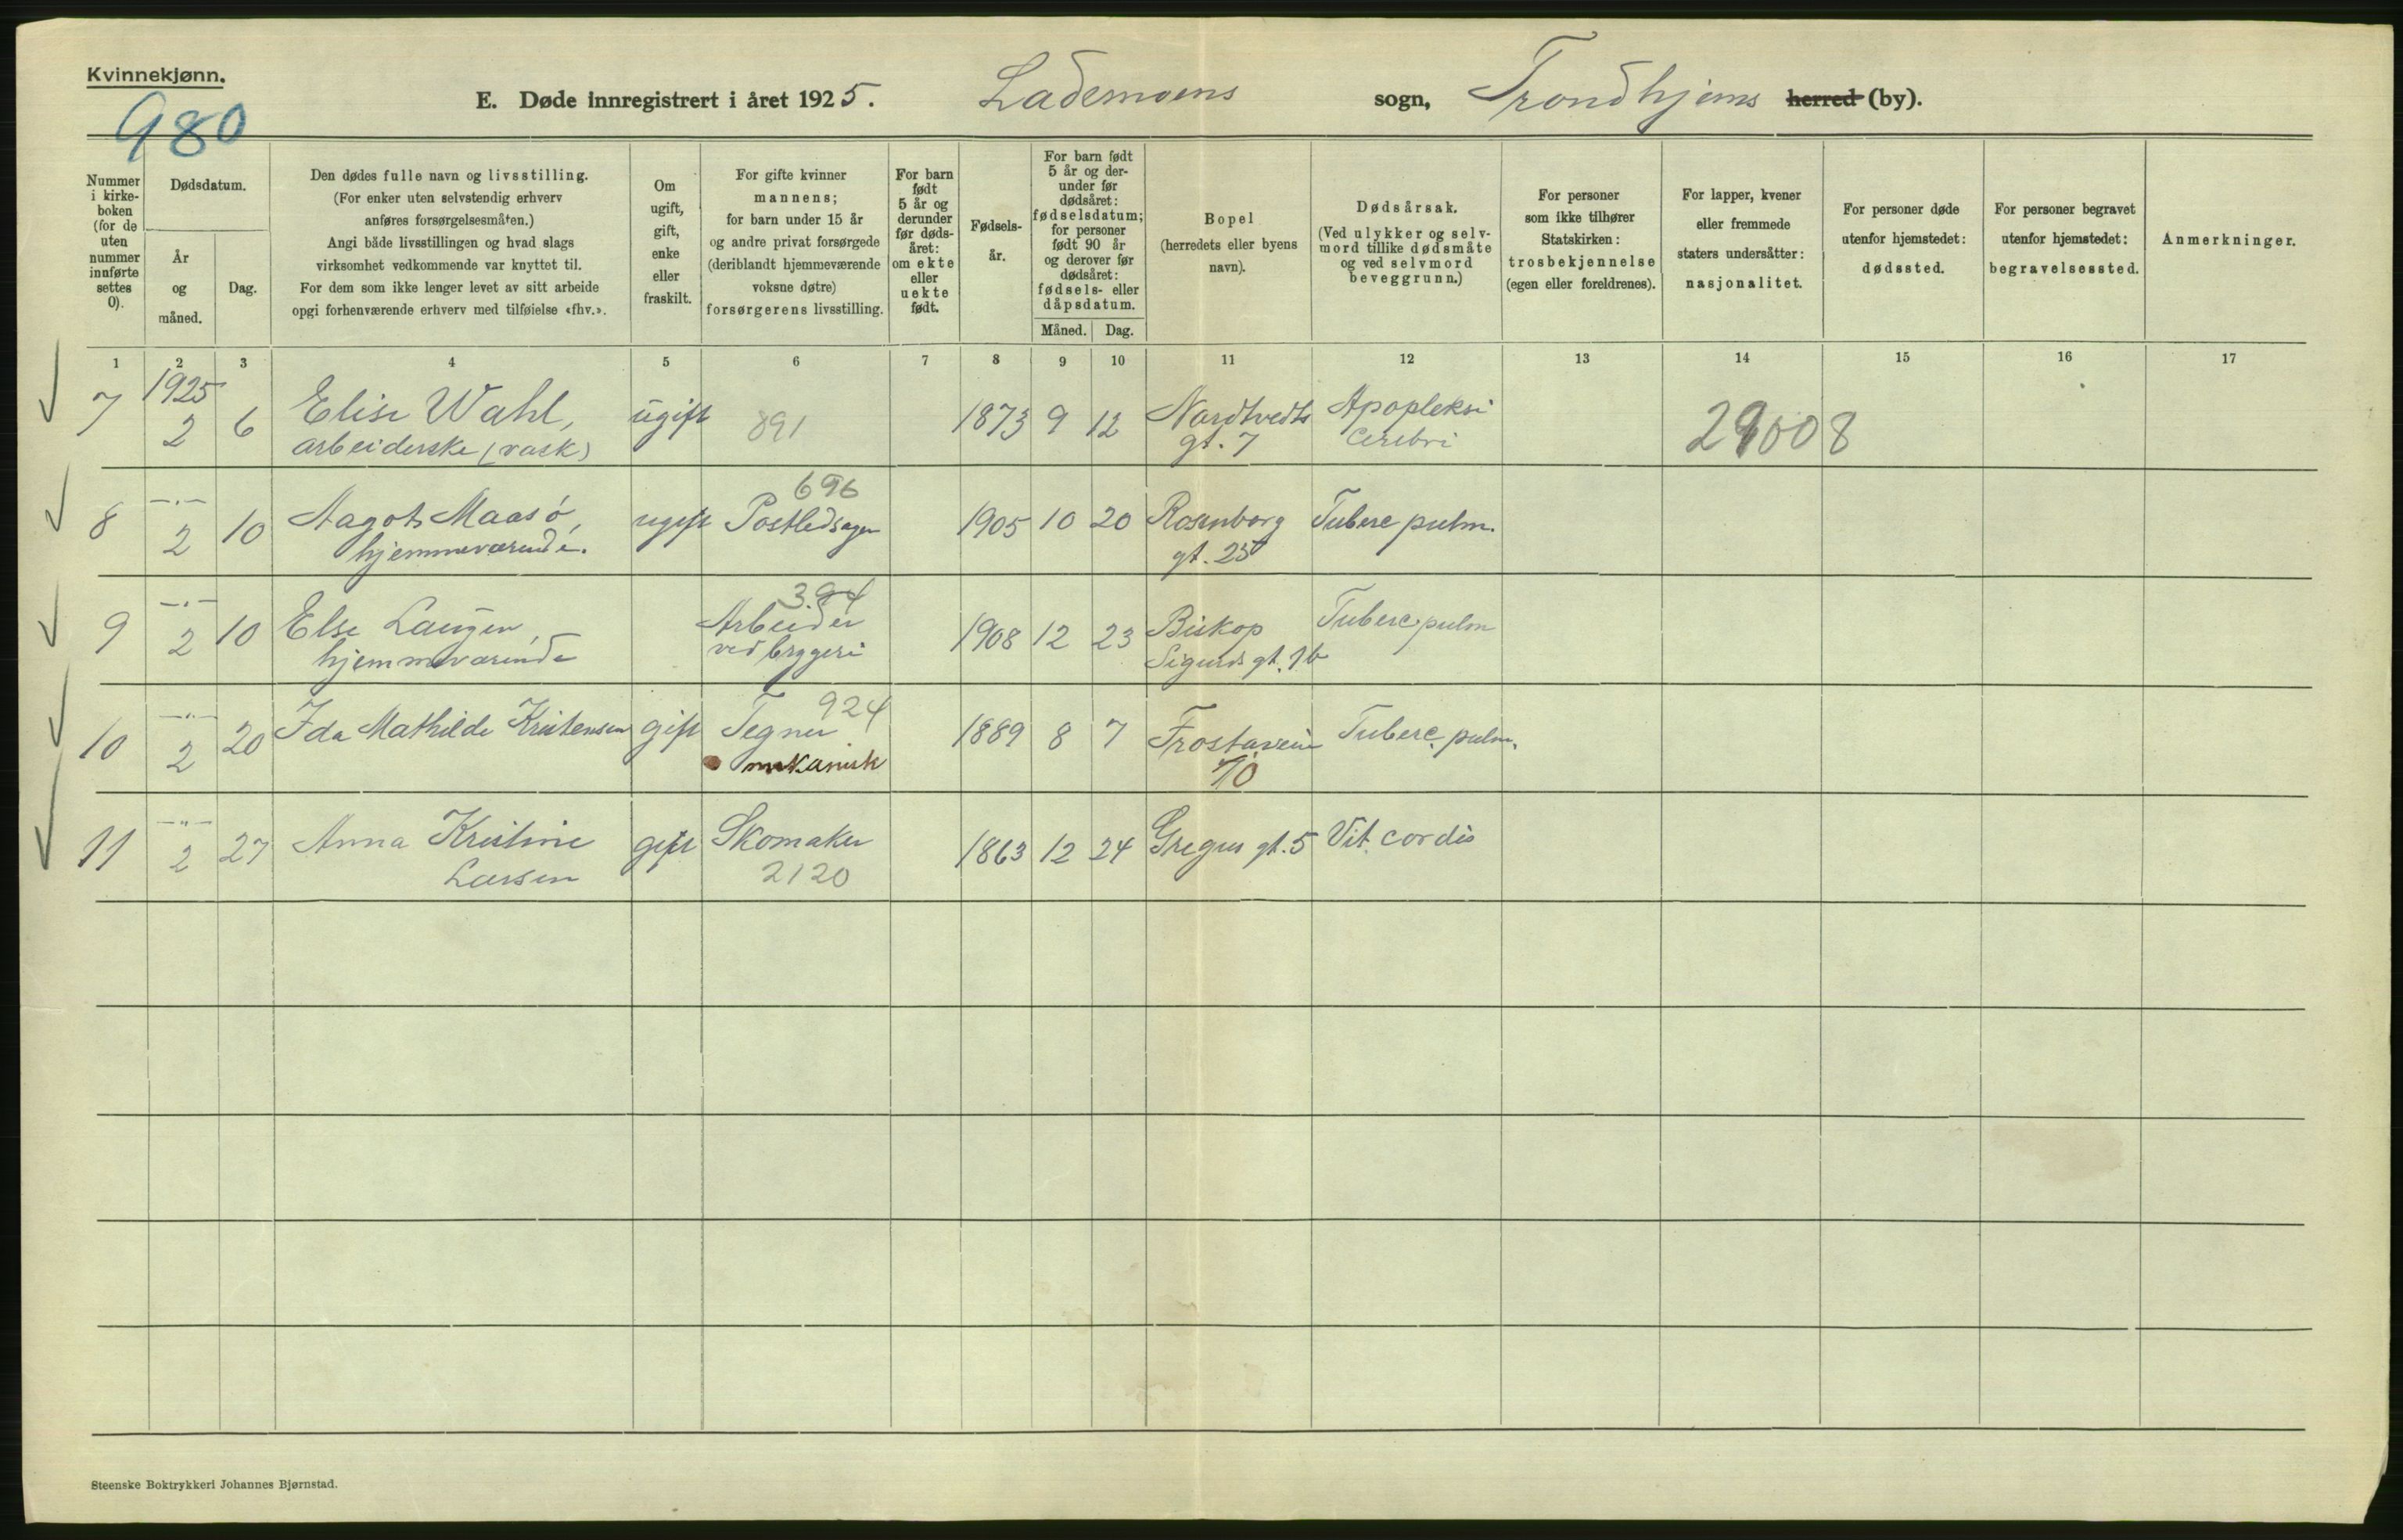 Kvinnekjønn.
980
E. Døde innregistrert i året 1925. Lademoens sogn, Trondhjems herred (by).
Nummer i kirke- boken (for de uten nummer innførte settes 0).
Dødsdatum.
År og måned.
Dag.
Den dødes fulle navn og livsstilling.
(For enker uten selvstendig erhverv
anføres forsørgelsesmåten.)
Angi både livsstillingen og hvad slags
virksomhet vedkommende var knyttet til.
For dem som ikke lenger levet av sitt arbeide
opgi forhenværende erhverv med tilføielse «fhv.».
Om ugift, gift, enke eller fraskilt.
For gifte kvinner
mannens;
for barn under 15 år
og andre privat forsørgede
(deriblandt hjemmeværende
voksne døtre)
forsørgerens livsstilling.
For barn født 5 år og derunder før døds- året: om ekte eller uekte født.
Fødsels- år.
For barn født 5 år og der- under før dødsåret: fødselsdatum; for personer født 90 år og derover før dødsåret: fødsels- eller dåpsdatum.
Måned. Dag.
Bopel
(herredets eller byens
navn).
Dødsårsak.
(Ved ulykker og selv-
mord tillike dødsmåte
og ved selvmord
beveggrunn.)
For personer
som ikke tilhører
Statskirken:
trosbekjennelse
(egen eller foreldrenes).
For lapper, kvener
eller fremmede
staters undersåtter:
nasjonalitet.
For personer døde
utenfor hjemstedet:
dødssted.
For personer begravet
utenfor hjemstedet:
begravelsessted.
Anmerkninger.
1 2 3 4 5 6 7 8 9 10 11 12 13 14 15 16 17
7 1925 2 6 Elise Wahl, ugift 891 1873 9 12 Nardtvedts Apopleksi
arbeiderske (vask) gt. 7 cerebri
8 2 10 Aagot Maasø, ugift 696 Postledsager 1905 10 20 Rosenborg Tuberc pulm.
hjemmeværende. gt. 25
9 2 10 Else Laugen, 394 Arbeider 1908 12 23 Biskop Tuberc. pulm
hjemmeværende ved bryggeri Sigurds gt. 1b
10 2 20 Ida Mathilde Kristensen gift Tegner 924 1889 8 7 Frostaveien Tuberc. pulm.
mekanisk 70
11 2 27 Anna Kristine gift Skomaker 1863 12 24 Gregus gt. 5 Vit. cordis
Larsen 2120
Steenske Boktrykkeri Johannes Bjørnstad.